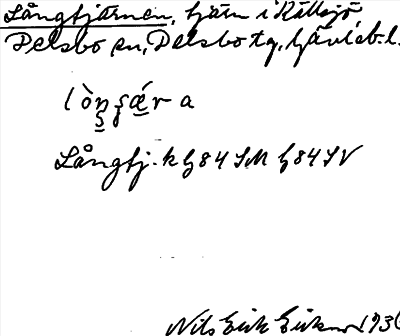 Långtjärnen, tjärn i Källsjö
Delsbo sn, Delsbo tg, Gävleb. l.
lòn̠ʂǽr a
Långtj. k G84 SM G84 SV
Nils Erik Erikson 1936